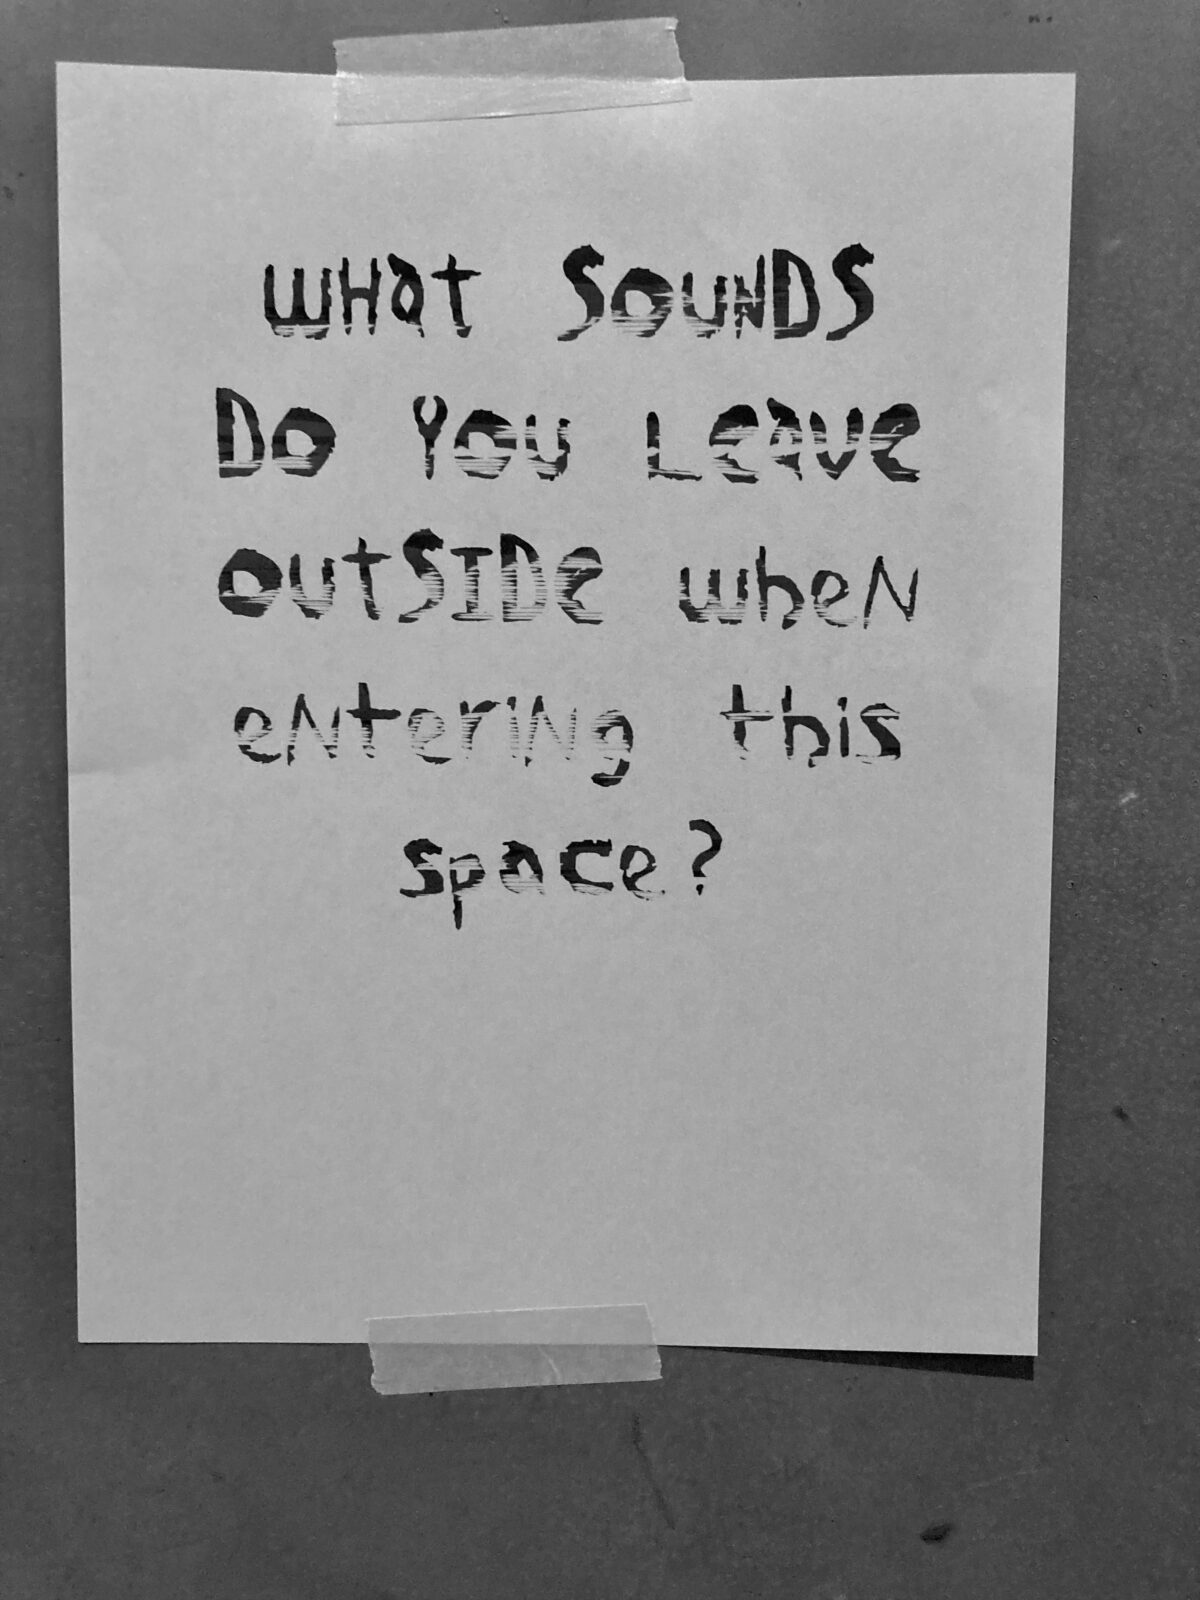 WHat SOUNDS
DO YOU LeaVe
OUtSIDe wheN
eNteriNg this
space?